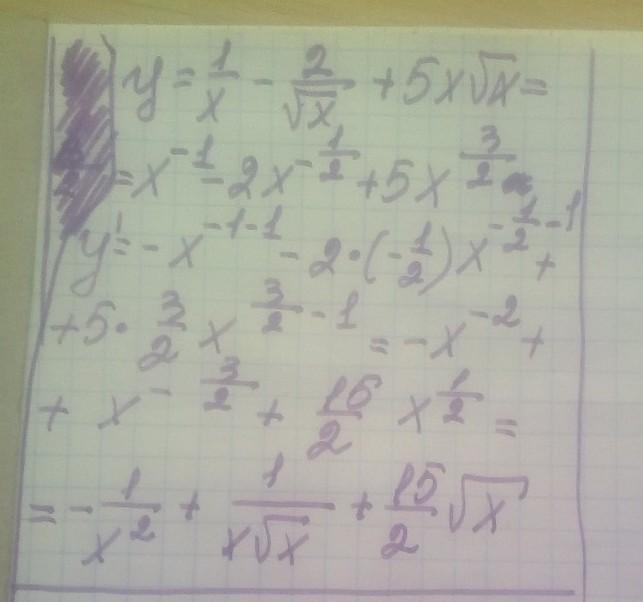 y = 1/x - 2/√x + 5x√x =
= x^(-1) - 2x^(-1/2) + 5x^(3/2)
y' = -x^(-1-1) - 2·(-1/2)x^(-1/2-1) +
+5· 3/2 x^(3/2-1) = -x^(-2) +
+ x^(-3/2) + 15/2 x^(1/2) =
= -1/x² + 1/(x√x) + 15/2 √x